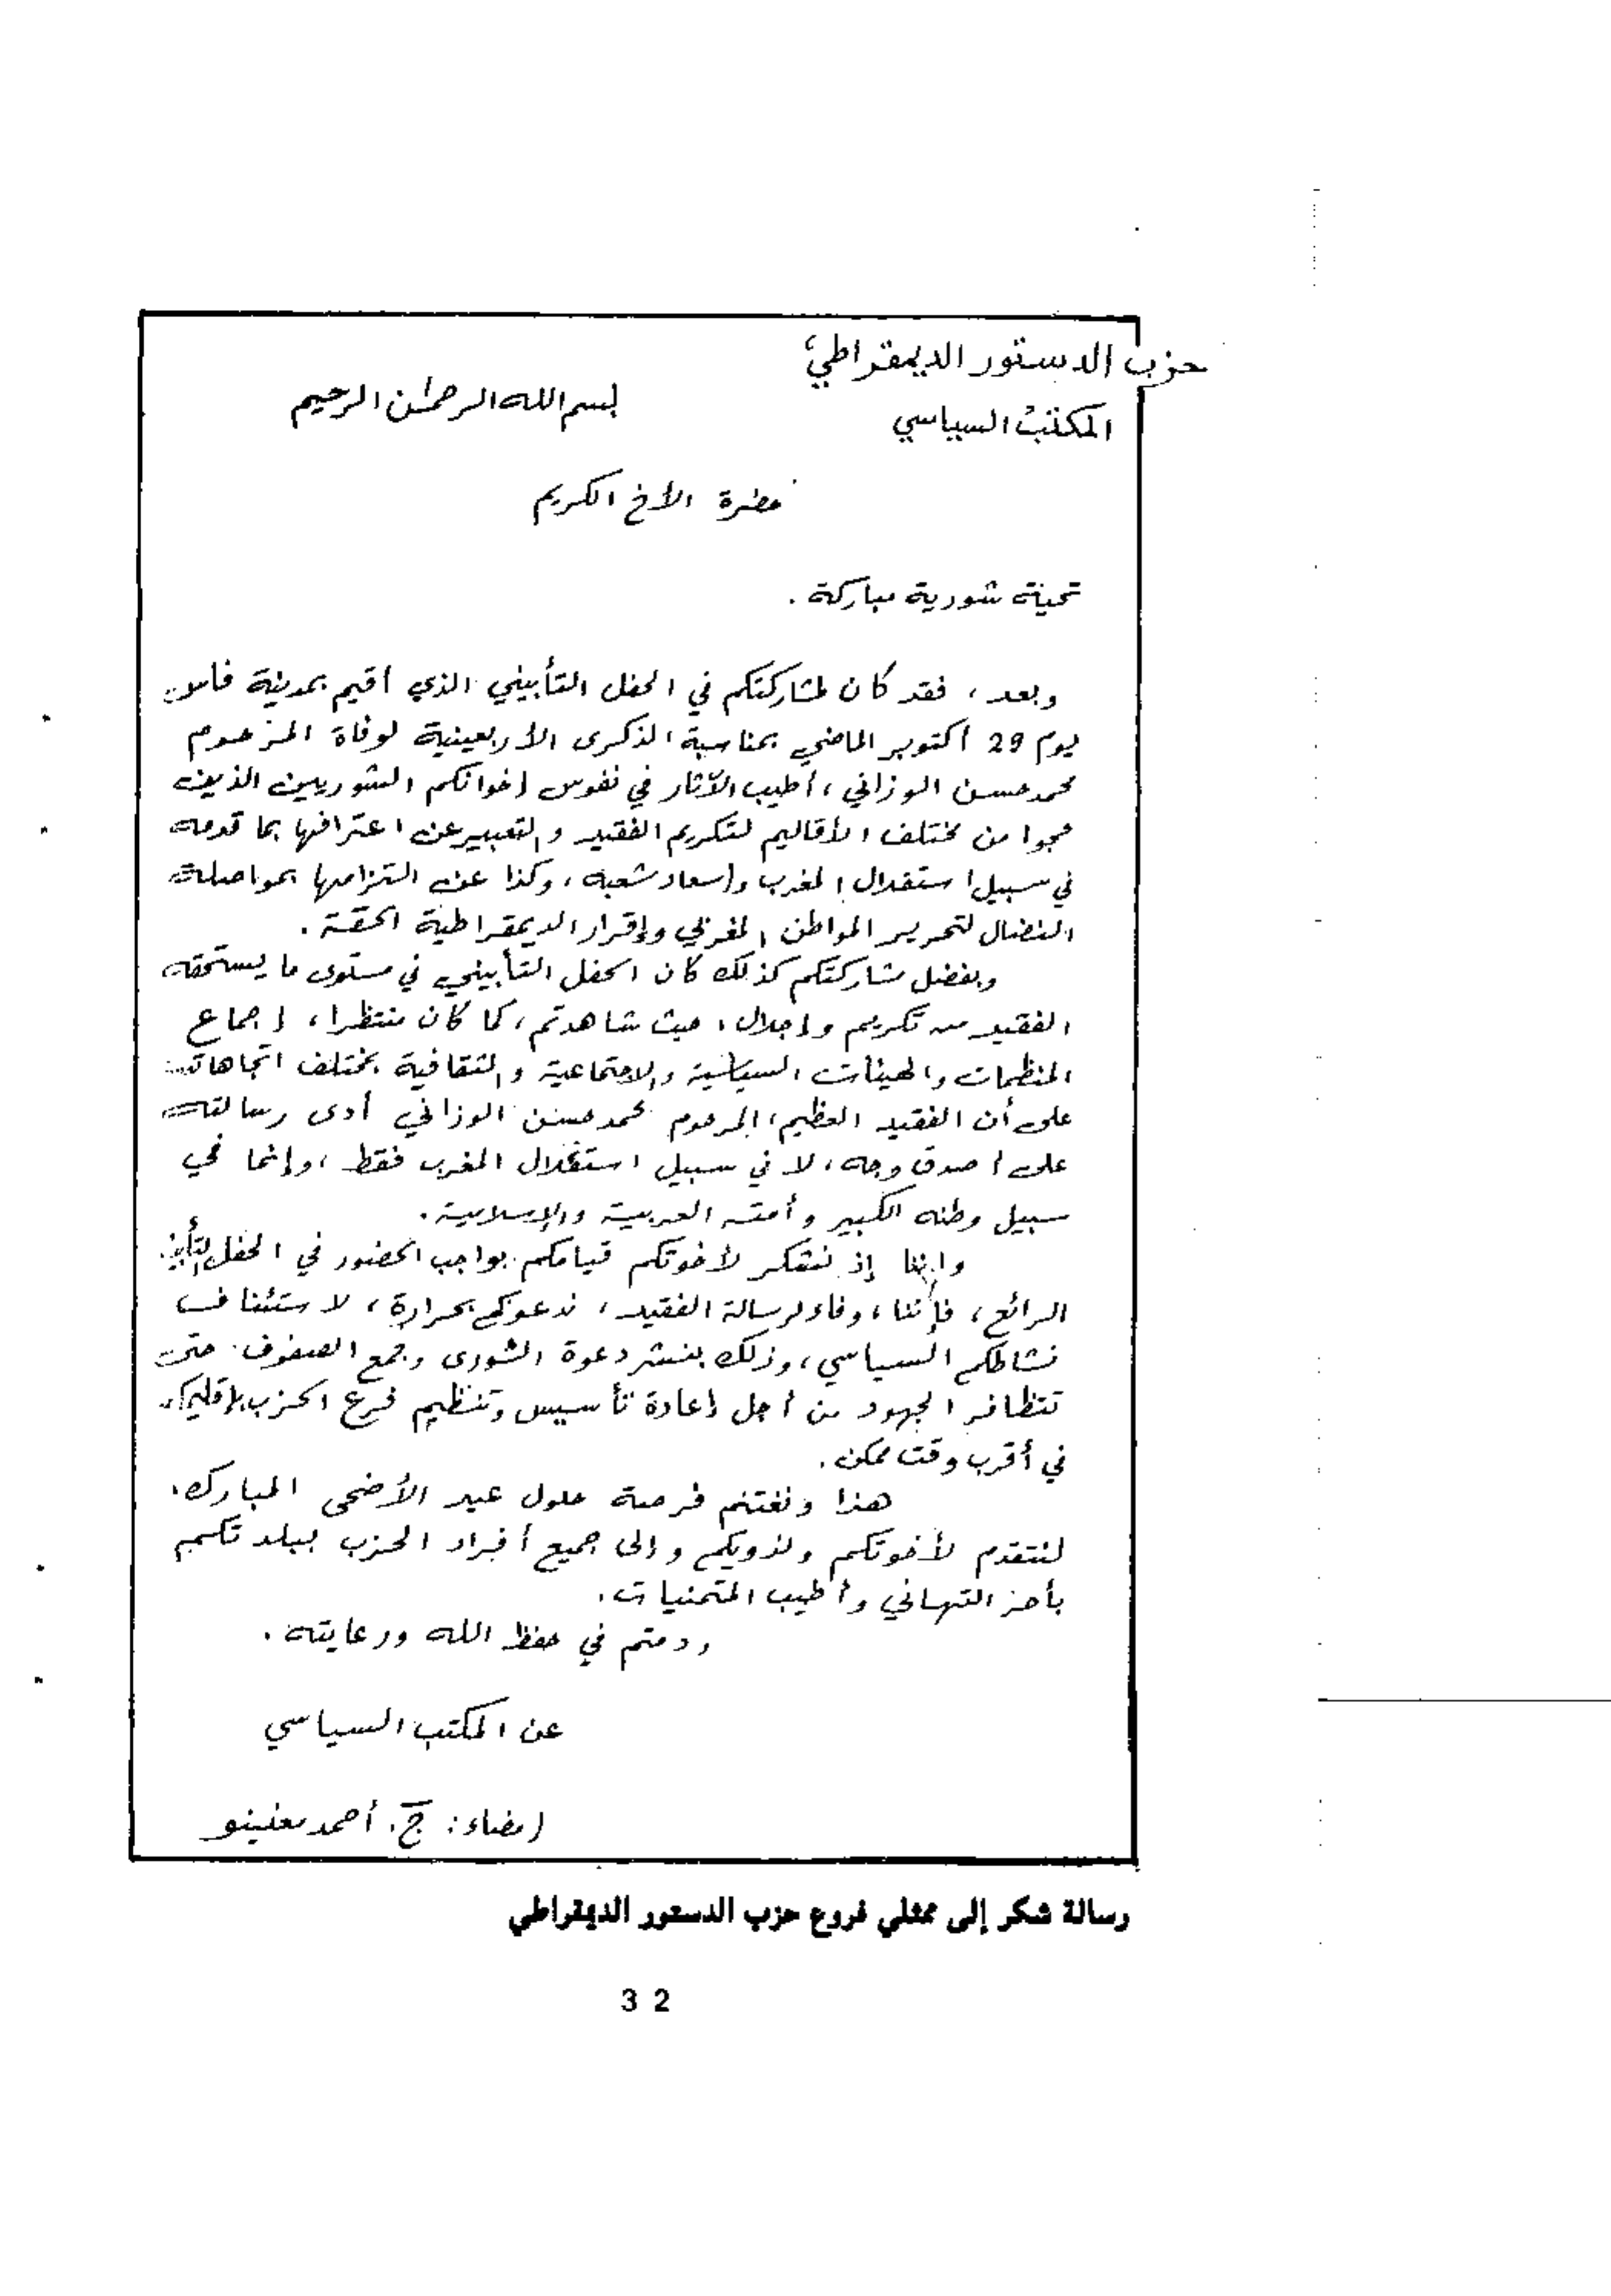 حزب الدستور الديمقراطي
بسم الله الرحمٰن الرحيم
المكتب السياسي
حضرة الأخ الكريم
تحية شورية مباركة .
وبعد ، فقد كان لمشاركتكم في الحفل التأبيني الذي أقيم بمدينة فاس
يوم 29 أكتوبر الماضي بمناسبة الذكرى الأربعينية لوفاة المرحوم
محمد حسن الوزاني ، أطيب الآثار في نفوس إخوانكم الشوريين الذين
حجوا من مختلف الأقاليم لتكريم الفقيد والتعبير عن اعترافها بما قدمه
في سبيل استقلال المغرب وإسعاد شعبه ، وكذا عن التزامها بمواصلة
النضال لتحرير المواطن المغربي وإقرار الديمقراطية الحقة .
وبفضل مشاركتكم كذلك كان الحفل التأبيني في مستوى ما يستحقه
الفقيد من تكريم وإجلال ، حيث شاهدتم ، كما كان منتظرا ، إجماع
المنظمات والهيئات السياسية والاجتماعية والثقافية بمختلف اتجاهاته
على أن الفقيد العظيم ، المرحوم محمد حسن الوزاني أدى رسالته
على أصدق وجه ، لا في سبيل استقلال المغرب فقط ، وإنما في
سبيل وطنه الكبير وأمته العربية والإسلامية .
وإننا إذ نشكر لأخوتكم قيامكم بواجب الحضور في الحفل التأبيني
الرائع ، فإننا ، وفاء لرسالة الفقيد ، ندعوكم بحرارة ، لاستئناف
نشاطكم السياسي ، وذلك بنشر دعوة الشورى وجمع الصفوف حتى
تتظافر الجهود من أجل إعادة تأسيس وتنظيم فرع الحزب بإقليمكم
في أقرب وقت ممكن .
هذا ونغتنم فرصة حلول عيد الأضحى المبارك ،
لنتقدم لأخوتكم ولذويكم وإلى جميع أفراد الحزب ببلدتكم
بأحر التهاني وأطيب المتمنيات .
ودمتم في حفظ الله ورعايته .
عن المكتب السياسي
إمضاء : ج . أحمد معنينو
رسالة شكر إلى ممثلي فروع حزب الدستور الديمقراطي
32